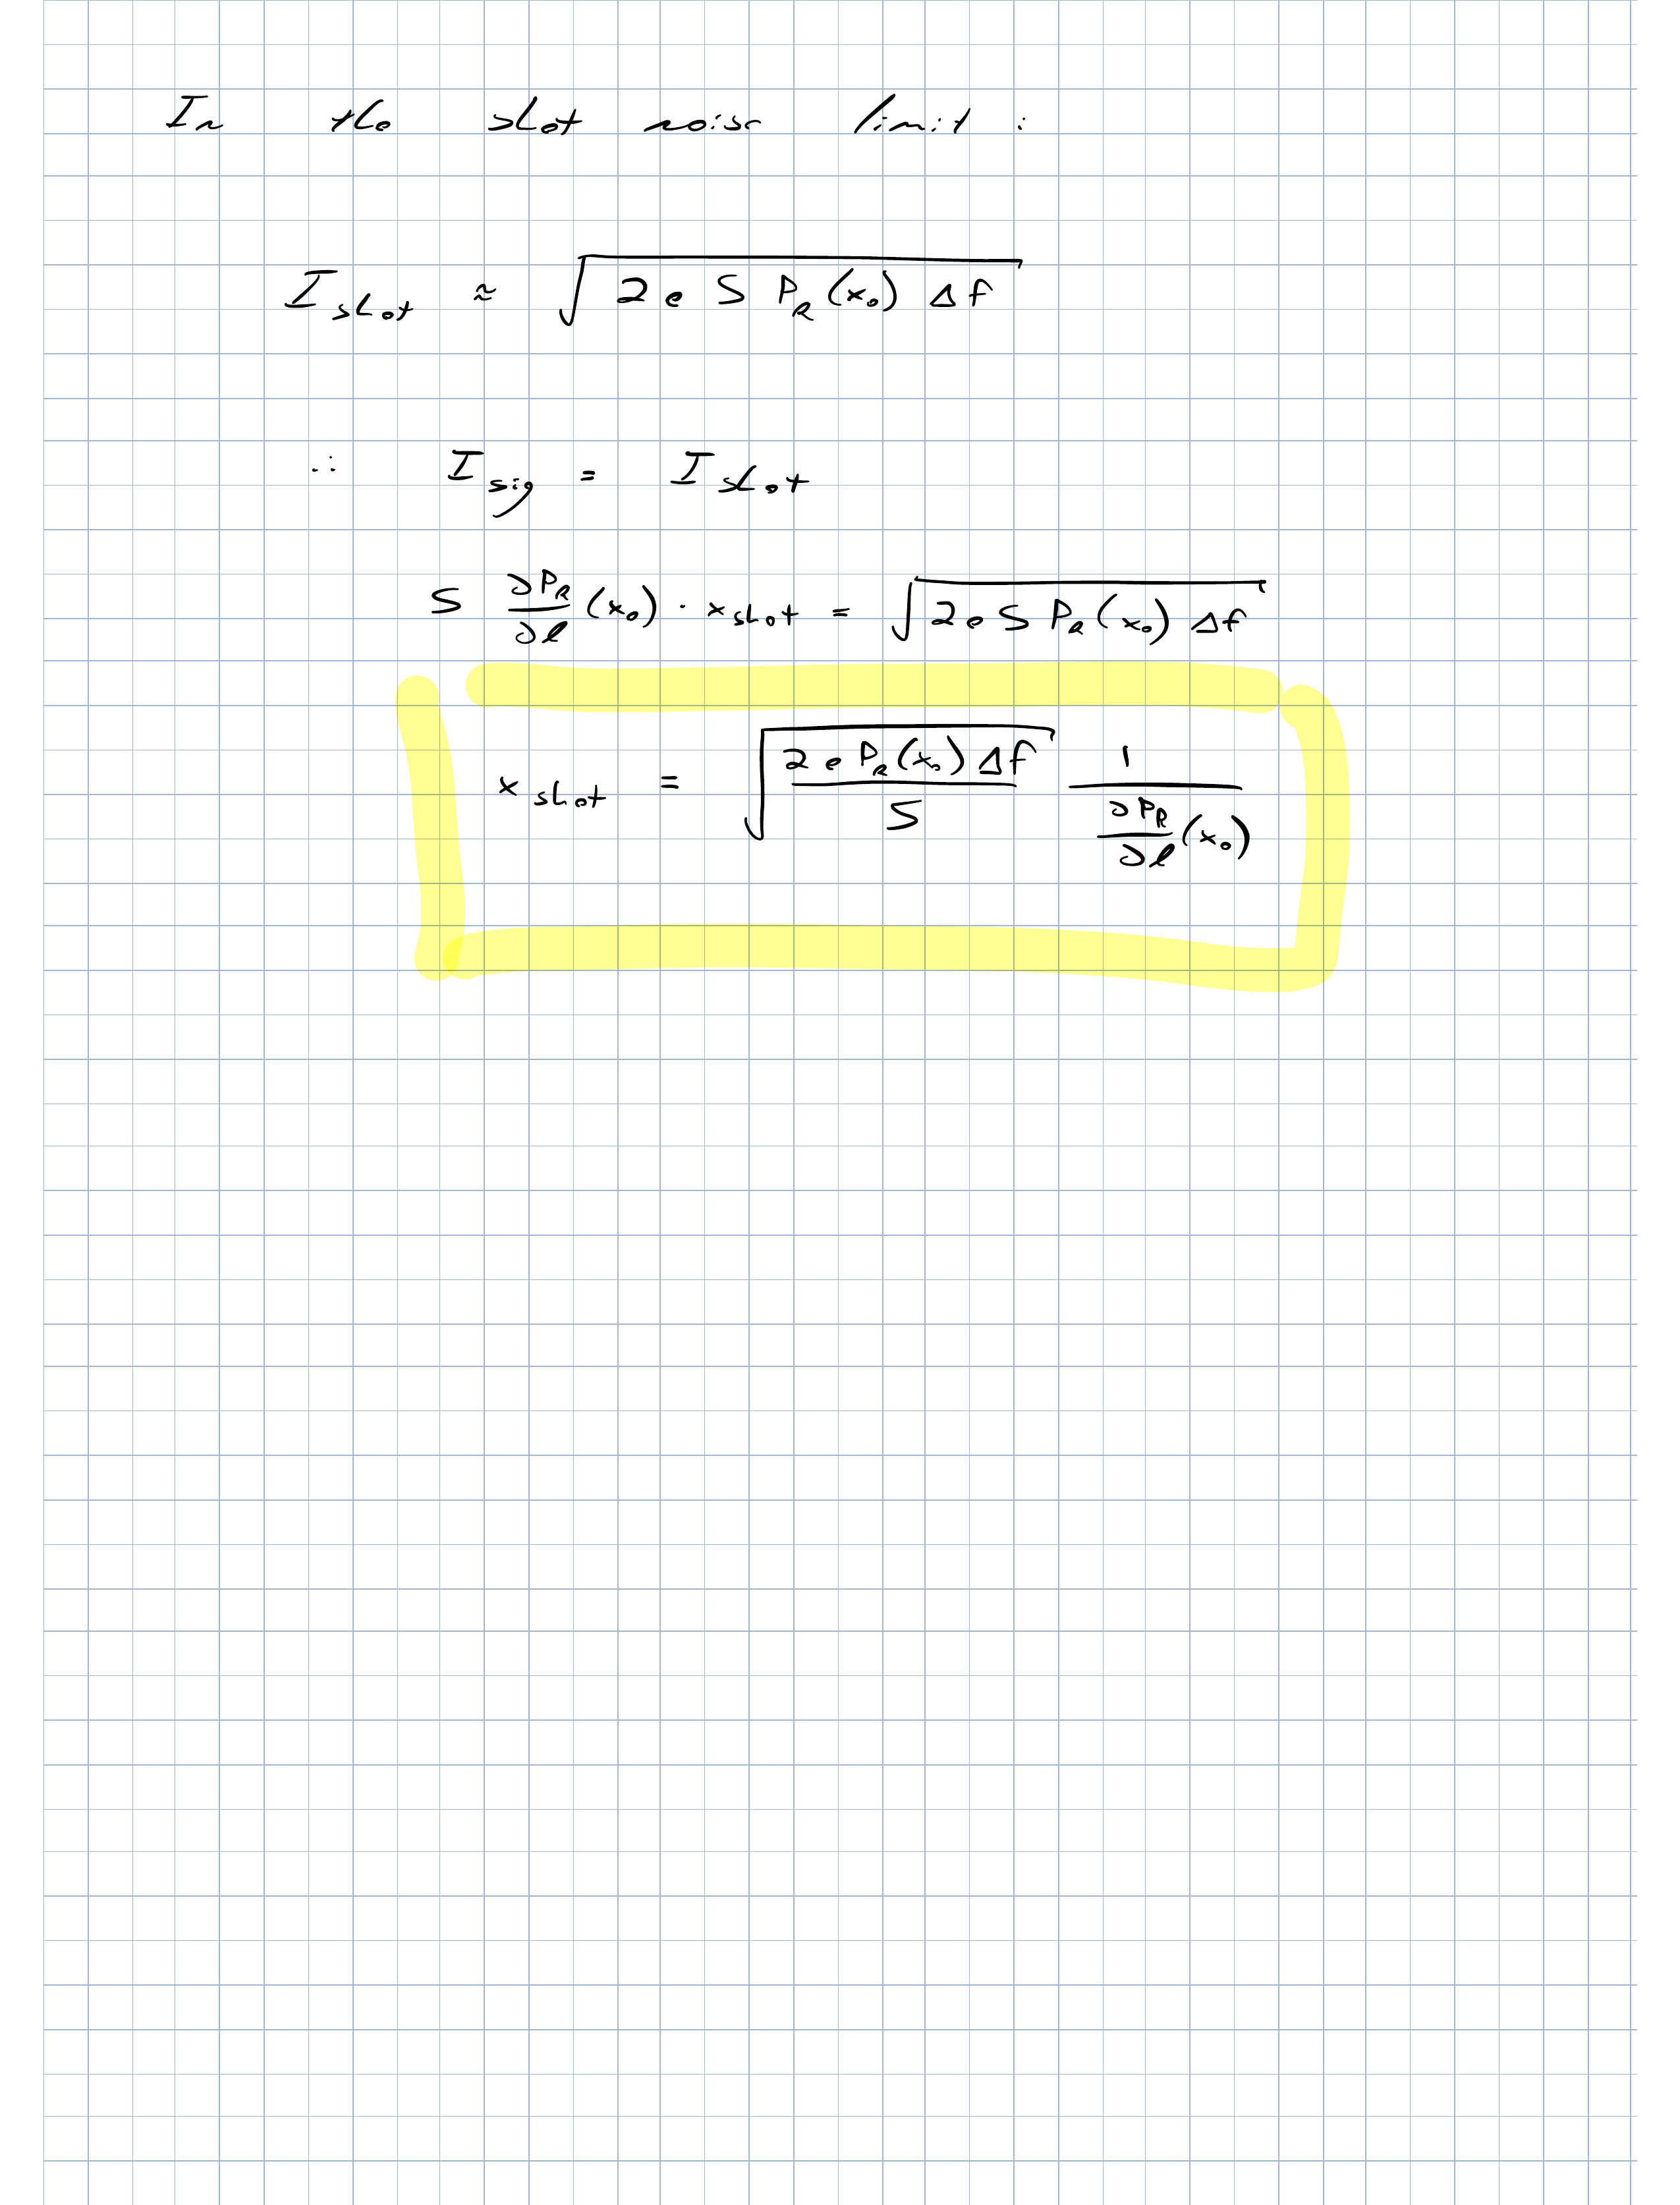 In the shot noise limit :
I_shot ≈ √(2 e S P_R(x₀) Δf)
∴ I_sig = I_shot
S ∂P_R/∂ℓ (x₀) · x_shot = √(2 e S P_R(x₀) Δf)
x_shot = √(2 e P_R(x₀) Δf / S) 1 / (∂P_R/∂ℓ (x₀))